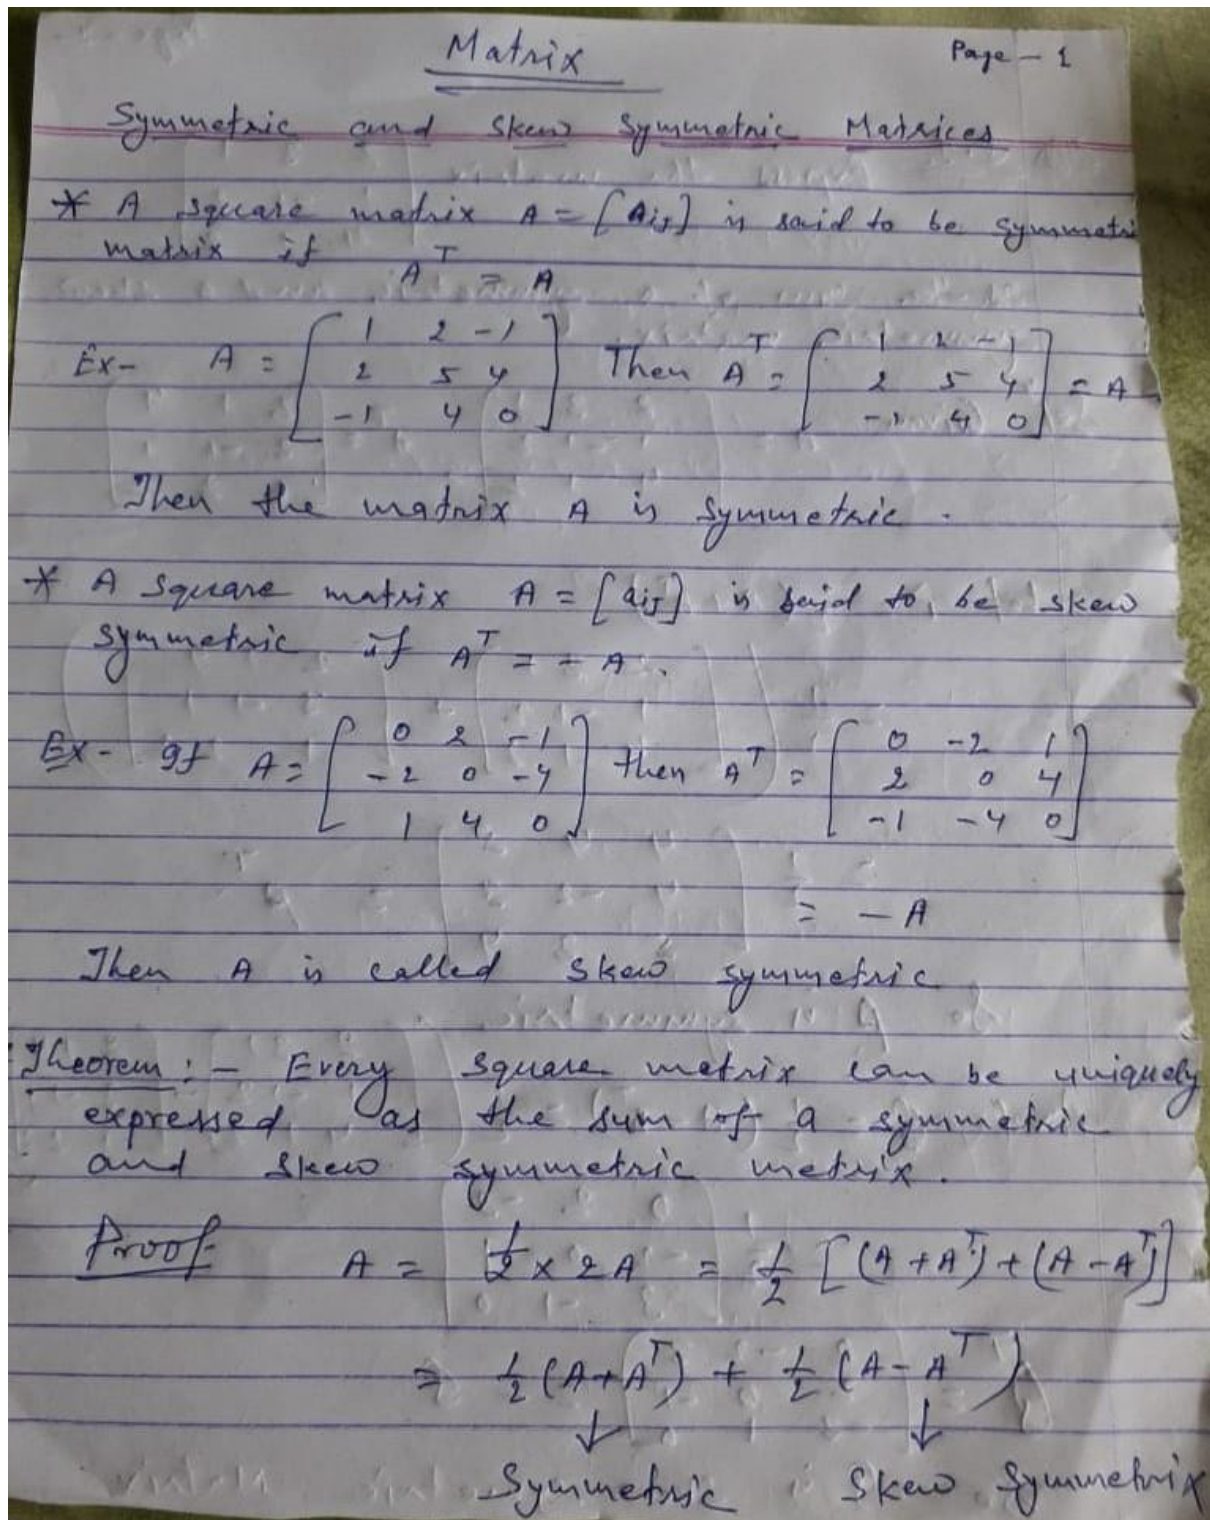 Matrix
Page - 1
Symmetric and Skew Symmetric Matrices
* A square matrix A = [aij] is said to be symmetri
matrix if
A^T = A
Ex- A = [ 1 2 -1 ] Then A^T = [ 1 2 -1 ] = A
2 5 4 2 5 4
-1 4 0 -1 4 0
Then the matrix A is Symmetric.
* A square matrix A = [aij] is said to be skew
symmetric if A^T = - A.
Ex- If A = [ 0 2 -1 ] then A^T = [ 0 -2 1 ]
-2 0 -4 2 0 4
1 4 0 -1 -4 0
= - A
Then A is called skew symmetric
Theorem :- Every square metrix can be uniquely
expressed as the sum of a symmetric
and skew symmetric metrix.
Proof A = 1/2 x 2A = 1/2 [(A + A^T) + (A - A^T)]
= 1/2 (A + A^T) + 1/2 (A - A^T)
↓ ↓
Symmetric Skew Symmetrix